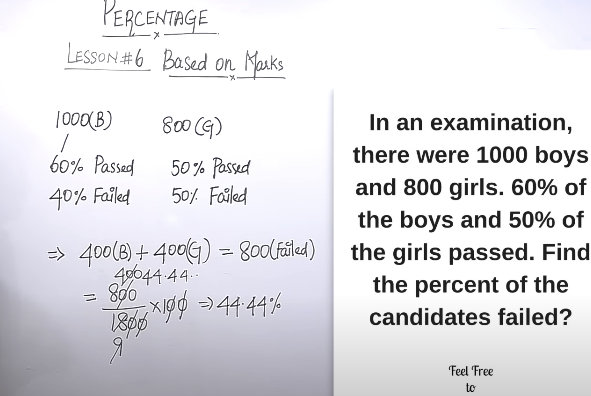 PERCENTAGE
LESSON #6 Based on Marks
1000(B) 800(G)
60% Passed 50% Passed
40% Failed 50% Failed
⇒ 400(B) + 400(G) = 800(Failed)
400 44.44..
= 800/1800 ×100 ⇒ 44.44%
9
In an examination,
there were 1000 boys
and 800 girls. 60% of
the boys and 50% of
the girls passed. Find
the percent of the
candidates failed?
Feel Free
to